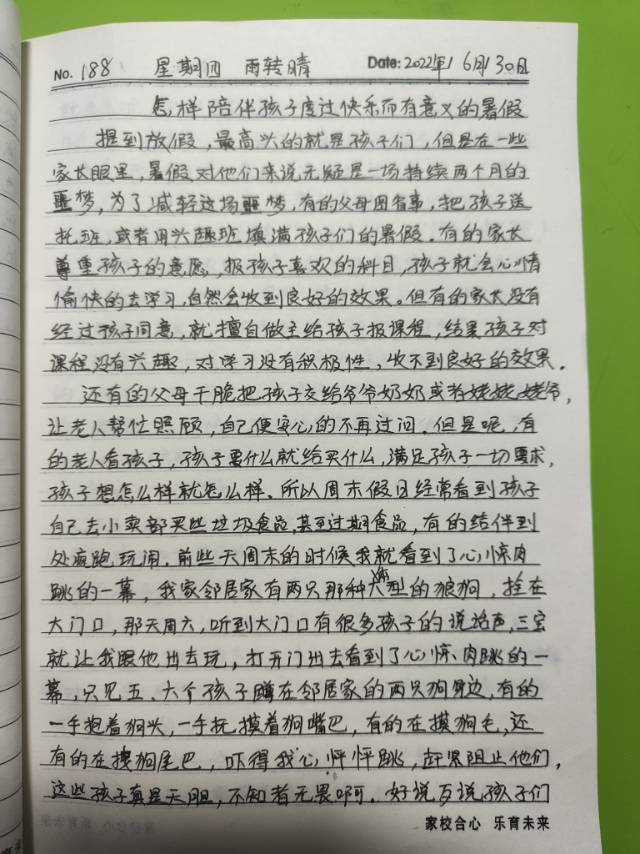 No. 188 星期四 雨转晴 Date: 2022年 6月30日
怎样陪伴孩子度过快乐而有意义的暑假
提到放假，最高兴的就是孩子们，但是在一些
家长眼里，暑假对他们来说无疑是一场持续两个月的
噩梦，为了减轻这场噩梦，有的父母图省事，把孩子送
托班，或者用兴趣班填满孩子们的暑假。有的家长
尊重孩子的意愿，报孩子喜欢的科目，孩子就会心情
愉快的去学习，自然会收到良好的效果。但有的家长没有
经过孩子同意，就擅自做主给孩子报课程，结果孩子对
课程没有兴趣，对学习没有积极性，收不到良好的效果。
还有的父母干脆把孩子交给爷爷奶奶或者姥姥姥爷，
让老人帮忙照顾，自己便安心的不再过问。但是呢，有
的老人看孩子，孩子要什么就给买什么，满足孩子一切要求，
孩子想怎么样就怎么样。所以周末假日经常看到孩子
自己去小卖部买些垃圾食品，甚至过期食品，有的结伴到
处疯跑玩闹。前些天周末的时候我就看到了心惊肉
跳的一幕，我家邻居家有两只那种大型的狼狗，拴在
大门口，那天周六，听到大门口有很多孩子的说话声，三宝
就让我跟他出去玩，打开门出去看到了心惊肉跳的一
幕，只见五、六个孩子蹲在邻居家的两只狗身边，有的
一手抱着狗头，一手抚摸着狗嘴巴，有的在摸狗毛，还
有的在摸狗尾巴，吓得我心怦怦跳，赶紧阻止他们，
这些孩子真是天胆，不知者无畏啊。好说歹说孩子们
家校合心 乐育未来